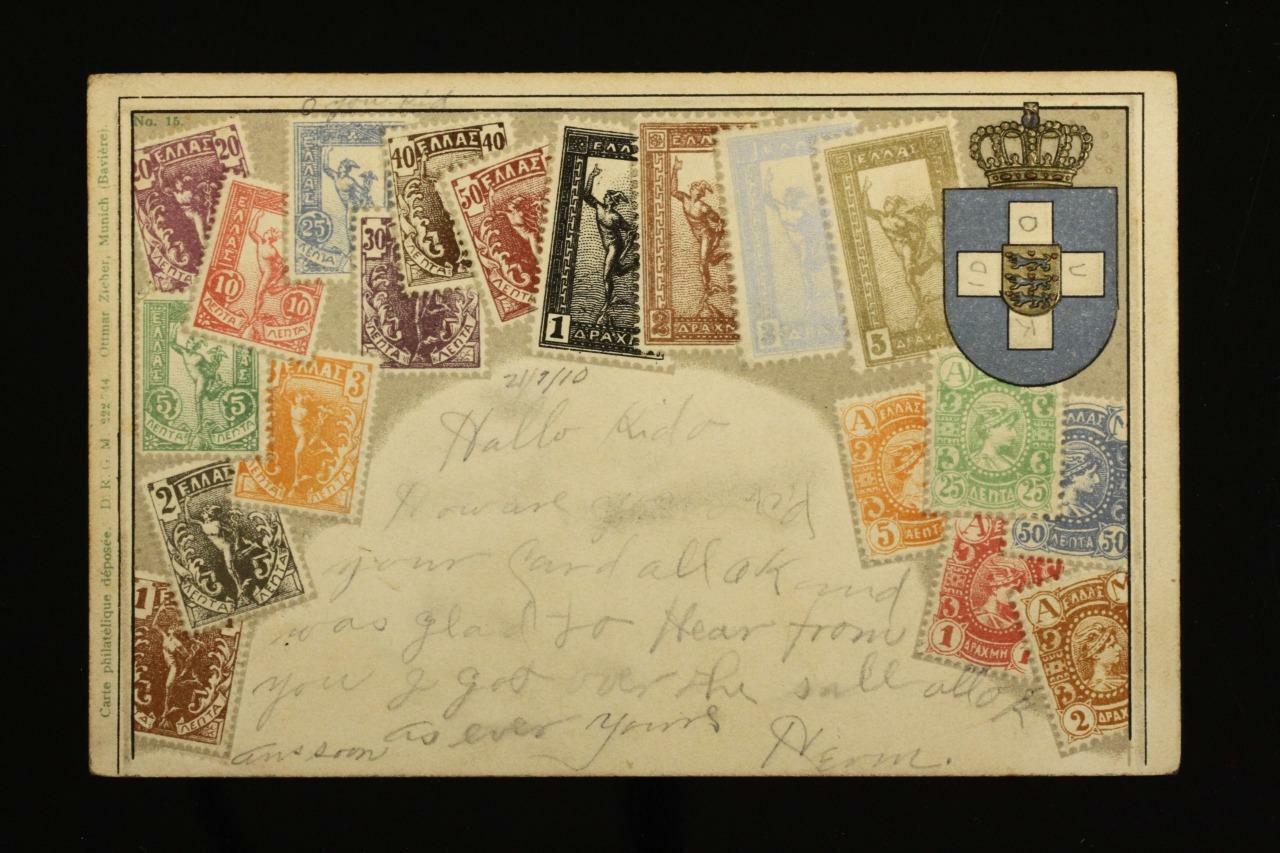 No. 15.
O you kid
Carte philatélique déposée. D. R. G. M. 222 744 Ottmar Zieher, Munich (Bavière).
20 ΕΛΛΑΣ 20
ΛΕΠΤΑ
ΕΛΛΑΣ
10 10
ΛΕΠΤΑ ΛΕΠΤΑ
ΕΛΛΑΣ
25
ΛΕΠΤΑ
30
ΛΕΠΤΑ ΛΕΠΤΑ
40 ΕΛΛΑΣ 40
ΛΕΠΤΑ
50 ΕΛΛΑΣ
ΛΕΠΤΑ
ΕΛΛ
1 ΔΡΑΧΜ
ΕΛΛ
2 ΔΡΑΧΜ
3 ΔΡΑΧΜ
ΕΛΛΑΣ
5 ΔΡΑΧΜ
O
D U
K
ΕΛΛΑΣ
5 5
ΛΕΠΤΑ ΛΕΠΤΑ
ΕΛΛΑΣ 3
ΛΕΠΤΑ ΛΕΠΤΑ
2 ΕΛΛΑΣ
ΛΕΠΤΑ ΛΕΠΤΑ
1
ΛΕΠΤΑ
Α ΕΛΛΑΣ
5 ΛΕΠΤ
Α
25 ΛΕΠΤΑ 25
ΛΛΑΣ Μ
50 ΛΕΠΤΑ 50
Α
1 ΔΡΑΧΜΗ 1
Α ΕΛΛΑΣ Μ
2 ΔΡΑΧ
21/9/10
Hallo Kido
How are you
your Card all ok and
was glad to Hear from
you I got over the all ok
ans soon as ever yours Herm.